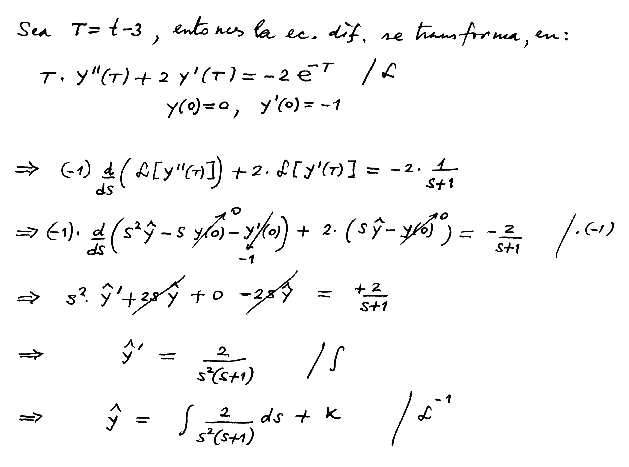 Sea T = t-3, entonces la ec. dif. se transforma, en:
T. y''(T) + 2 y'(T) = -2 e^-T / ℒ
y(0)=0, y'(0)= -1
⇒ (-1) d/ds ( ℒ[y''(T)] ) + 2. ℒ[y'(T)] = -2. 1/(s+1)
⇒ (-1). d/ds ( s²ŷ - s y(0)↗0 - y'(0) ) + 2. ( s ŷ - y(0)↗0 ) = - 2/(s+1) /.(-1)
-1
⇒ s². ŷ' + 2s ŷ + 0 - 2s ŷ = +2/(s+1)
⇒ ŷ' = 2/(s²(s+1)) / ∫
⇒ ŷ = ∫ 2/(s²(s+1)) ds + K / ℒ^-1